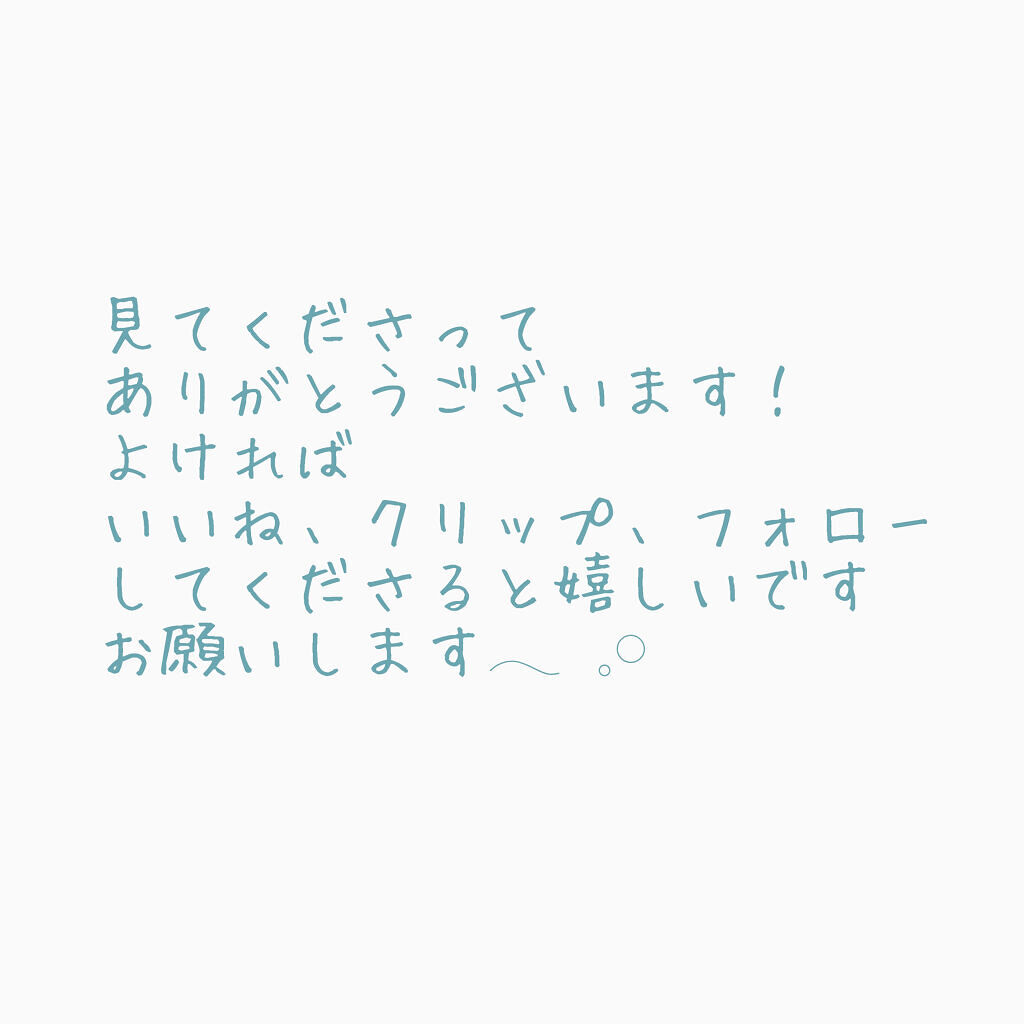 見てくださって
ありがとうございます!
よければ
いいね、クリップ、フォロー
してくださると嬉しいです
お願いします〜 。○